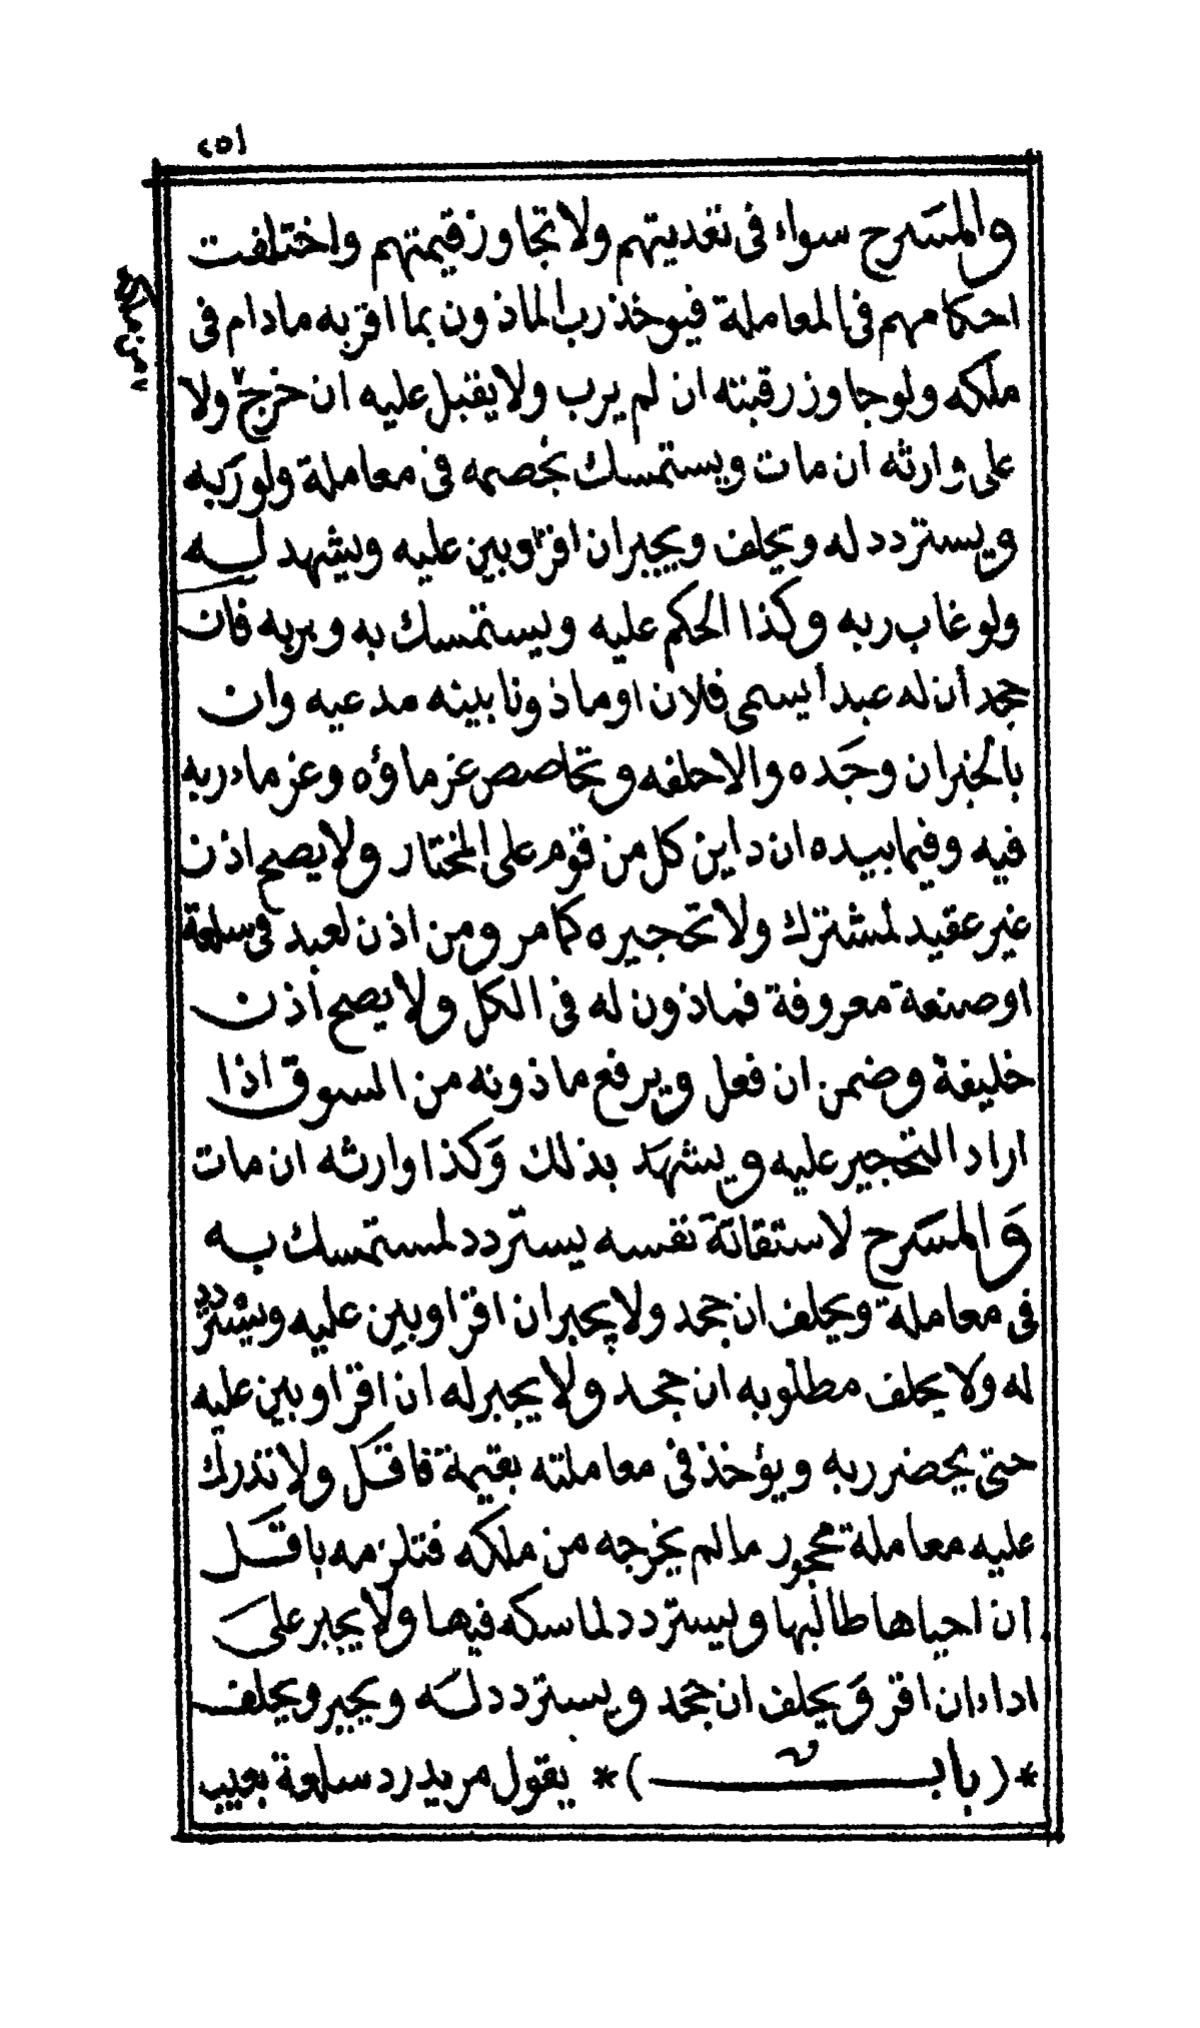 ٢٥١
والمسرح سواء فى تعديتهم ولا تجاوز قيمتهم واختلفت
احكامهم فى المعاملة فيوخذ رب الماذون بما اقر به مادام فى
ملكه ولو جاوز رقبته ان لم يرب ولا يقبل عليه ان خرج ٧ ولا
٧ من ملكه
على وارثه ان مات ويستمسك بخصمه فى معاملة ولو ركبه
ويستردد له ويحلف ويجبر ان اقر او بين عليه ويشهد له
ولو غاب ربه وكذا الحكم عليه ويستمسك به وبربه فان
جحد أن له عبد أ يسمى فلان او ماذونا بينه مدعيه وان
بالخبران وجده والا حلفه وتحاصص غرماؤه وغرماء ربه
فيه وفيما بيده ان داين كل من قوم على المختار ولا يصح اذن
غير عقيد لمشترك ولا تحجيره كما مر ومن اذن لعبد فى سلعة
او صنعة معروفة فماذون له فى الكل ولا يصح أذن
خليفة وضمن ان فعل ويرفع ماذونه من السوق اذا
اراد التحجير عليه ويشهد بذلك وكذا وارثه ان مات
والمسرح لاستقاتة نفسه يستردد لمستمسك به
فى معاملة ويحلف ان جحد ولا يجبر ان اقر او بين عليه ويستردد
له ولا يحلف مطلوبه ان جحد ولا يجبر له ان اقر او بين عليه
حتى يحضر ربه ويؤخذ فى معاملته بقيمة فاقل ولا تدرك
عليه معاملة محجور مالم يخرجه من ملكه فتلزمه باقل
ان احياها طالبها ويستردد لماسكه فيها ولا يجبر على
اداء ان اقر ويحلف ان جحد ويستردد له ويجبر ويحلف
*(باب)* يقول مريد رد سلعة بعيب